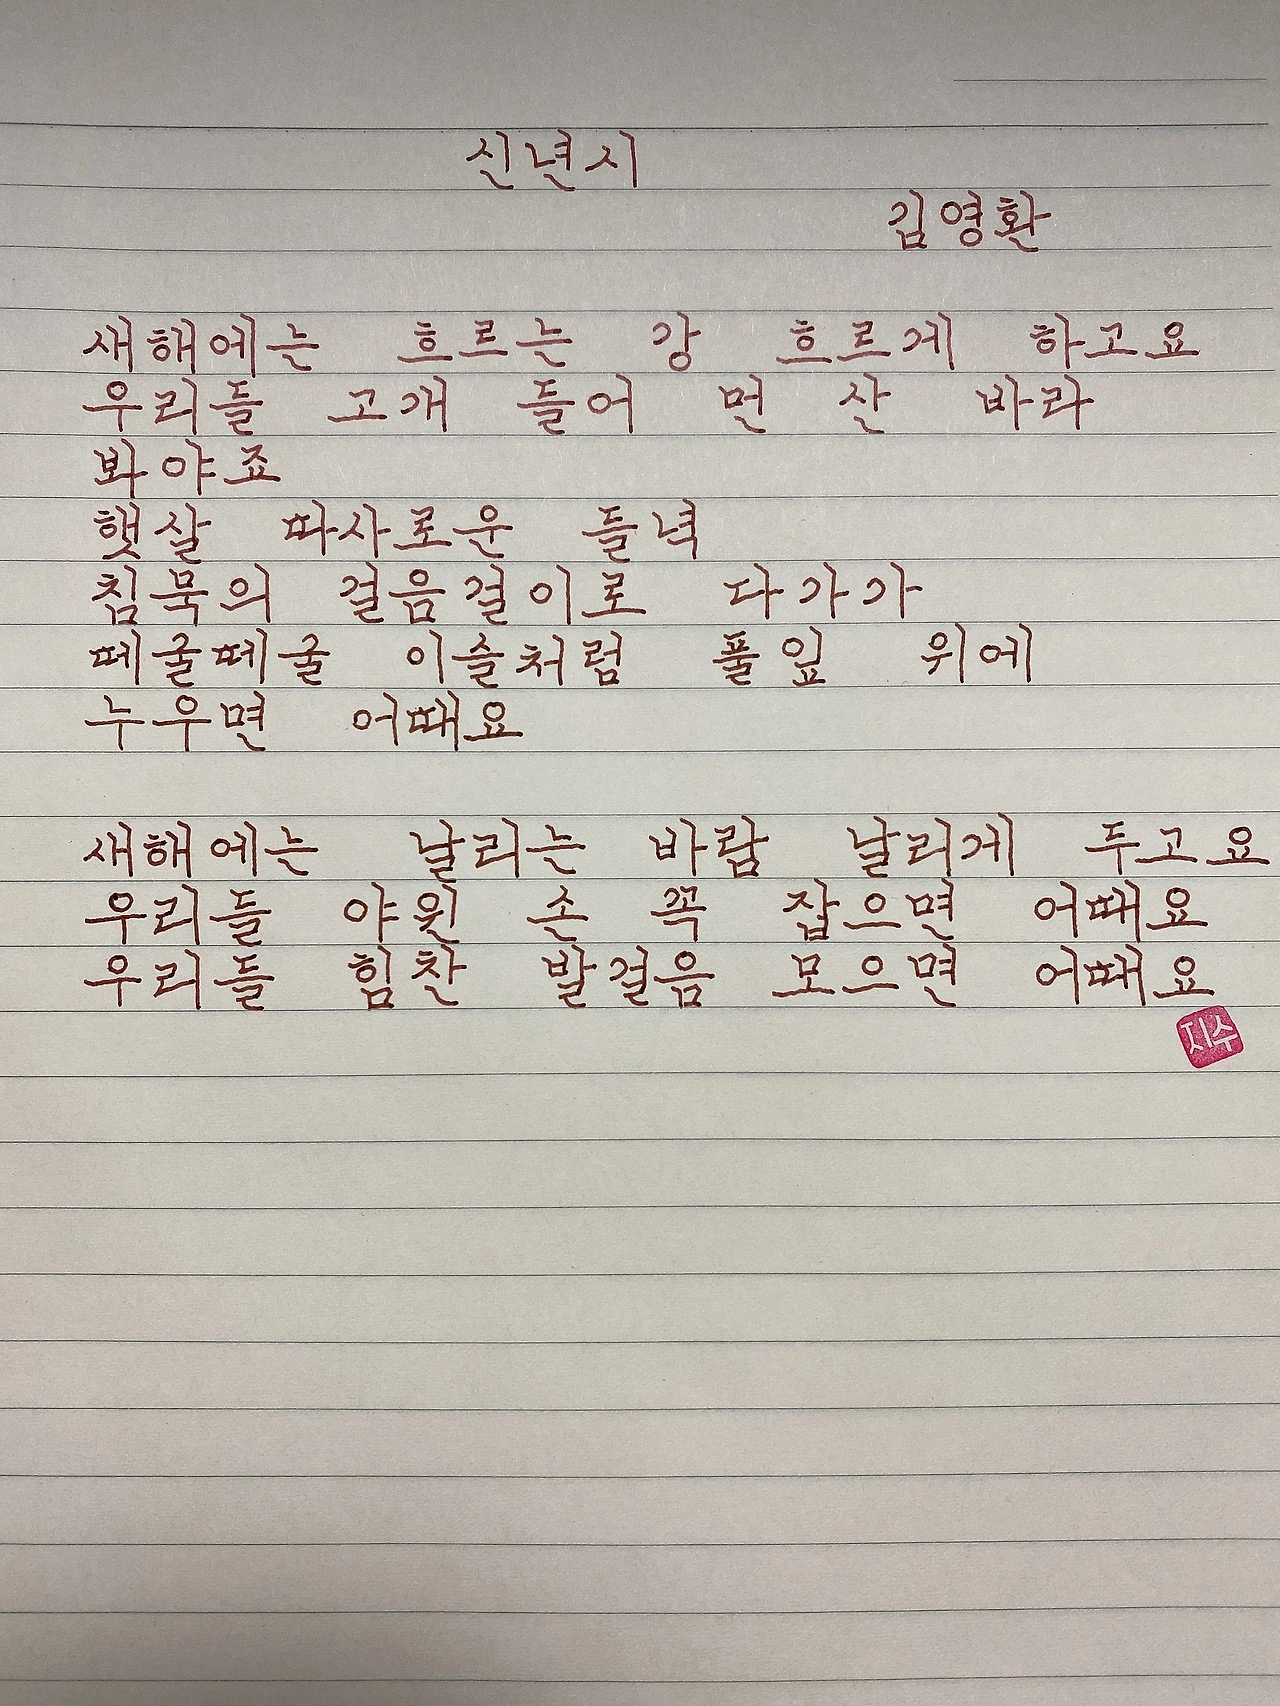 신년시
김영환
새해에는 흐르는 강 흐르게 하고요
우리들 고개 들어 먼 산 바라
봐야죠
햇살 따사로운 들녘
침묵의 걸음걸이로 다가가
떼굴떼굴 이슬처럼 풀잎 위에
누우면 어때요
새해에는 날리는 바람 날리게 두고요
우리들 야윈 손 꼭 잡으면 어때요
우리들 힘찬 발걸음 모으면 어때요
지수